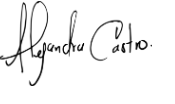 Alejandra Castro.